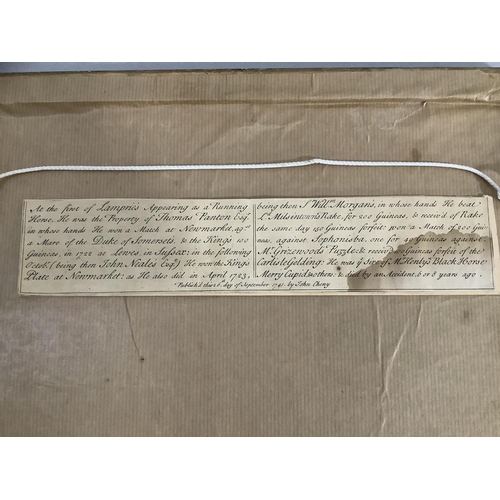 At the first of Lampries Appearing as a Running
Horse, He was the Property of Thomas Panton Esqr.
in whose hands He won a Match at Newmarket, agst.
a Mare of the Duke of Somersets, & the Kings 100
Guineas, in 1722 at Lewes, in Sussex: in the following
Octobr. (being then John Neales Esqr.) He won the Kings
Plate at Newmarket: as He also did in April 1723,
being then Sr. Willm. Morgans, in whose hands He beat
Ld. Milsintown's Rake, for 200 Guineas, & receiv'd of Rake
the same day 150 Guineas forfeit: won a Match of Guin
eas, against Sophonisba, one for Guineas against
Mr. Grizewoods Puzzle, & receiv'd Guineas forfeit of the
Carlisle Gelding: He was ye Sire of Mr. Henlys Black Horse
Merry Cupid & others: & died by an Accident, 6 or 8 years ago.
Publish'd this 26 day of September 1741. by John Cheny